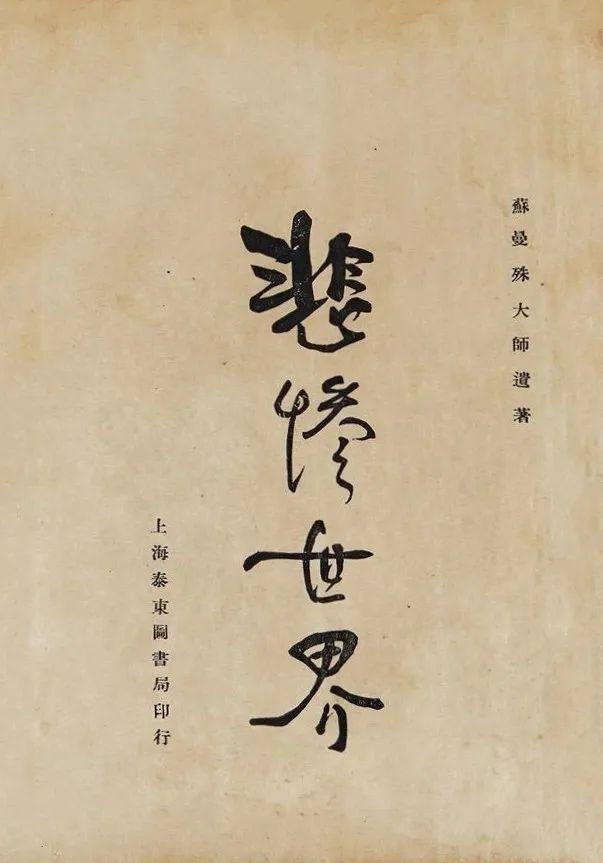 蘇曼殊大師遺著
悲慘世界
上海泰東圖書局印行